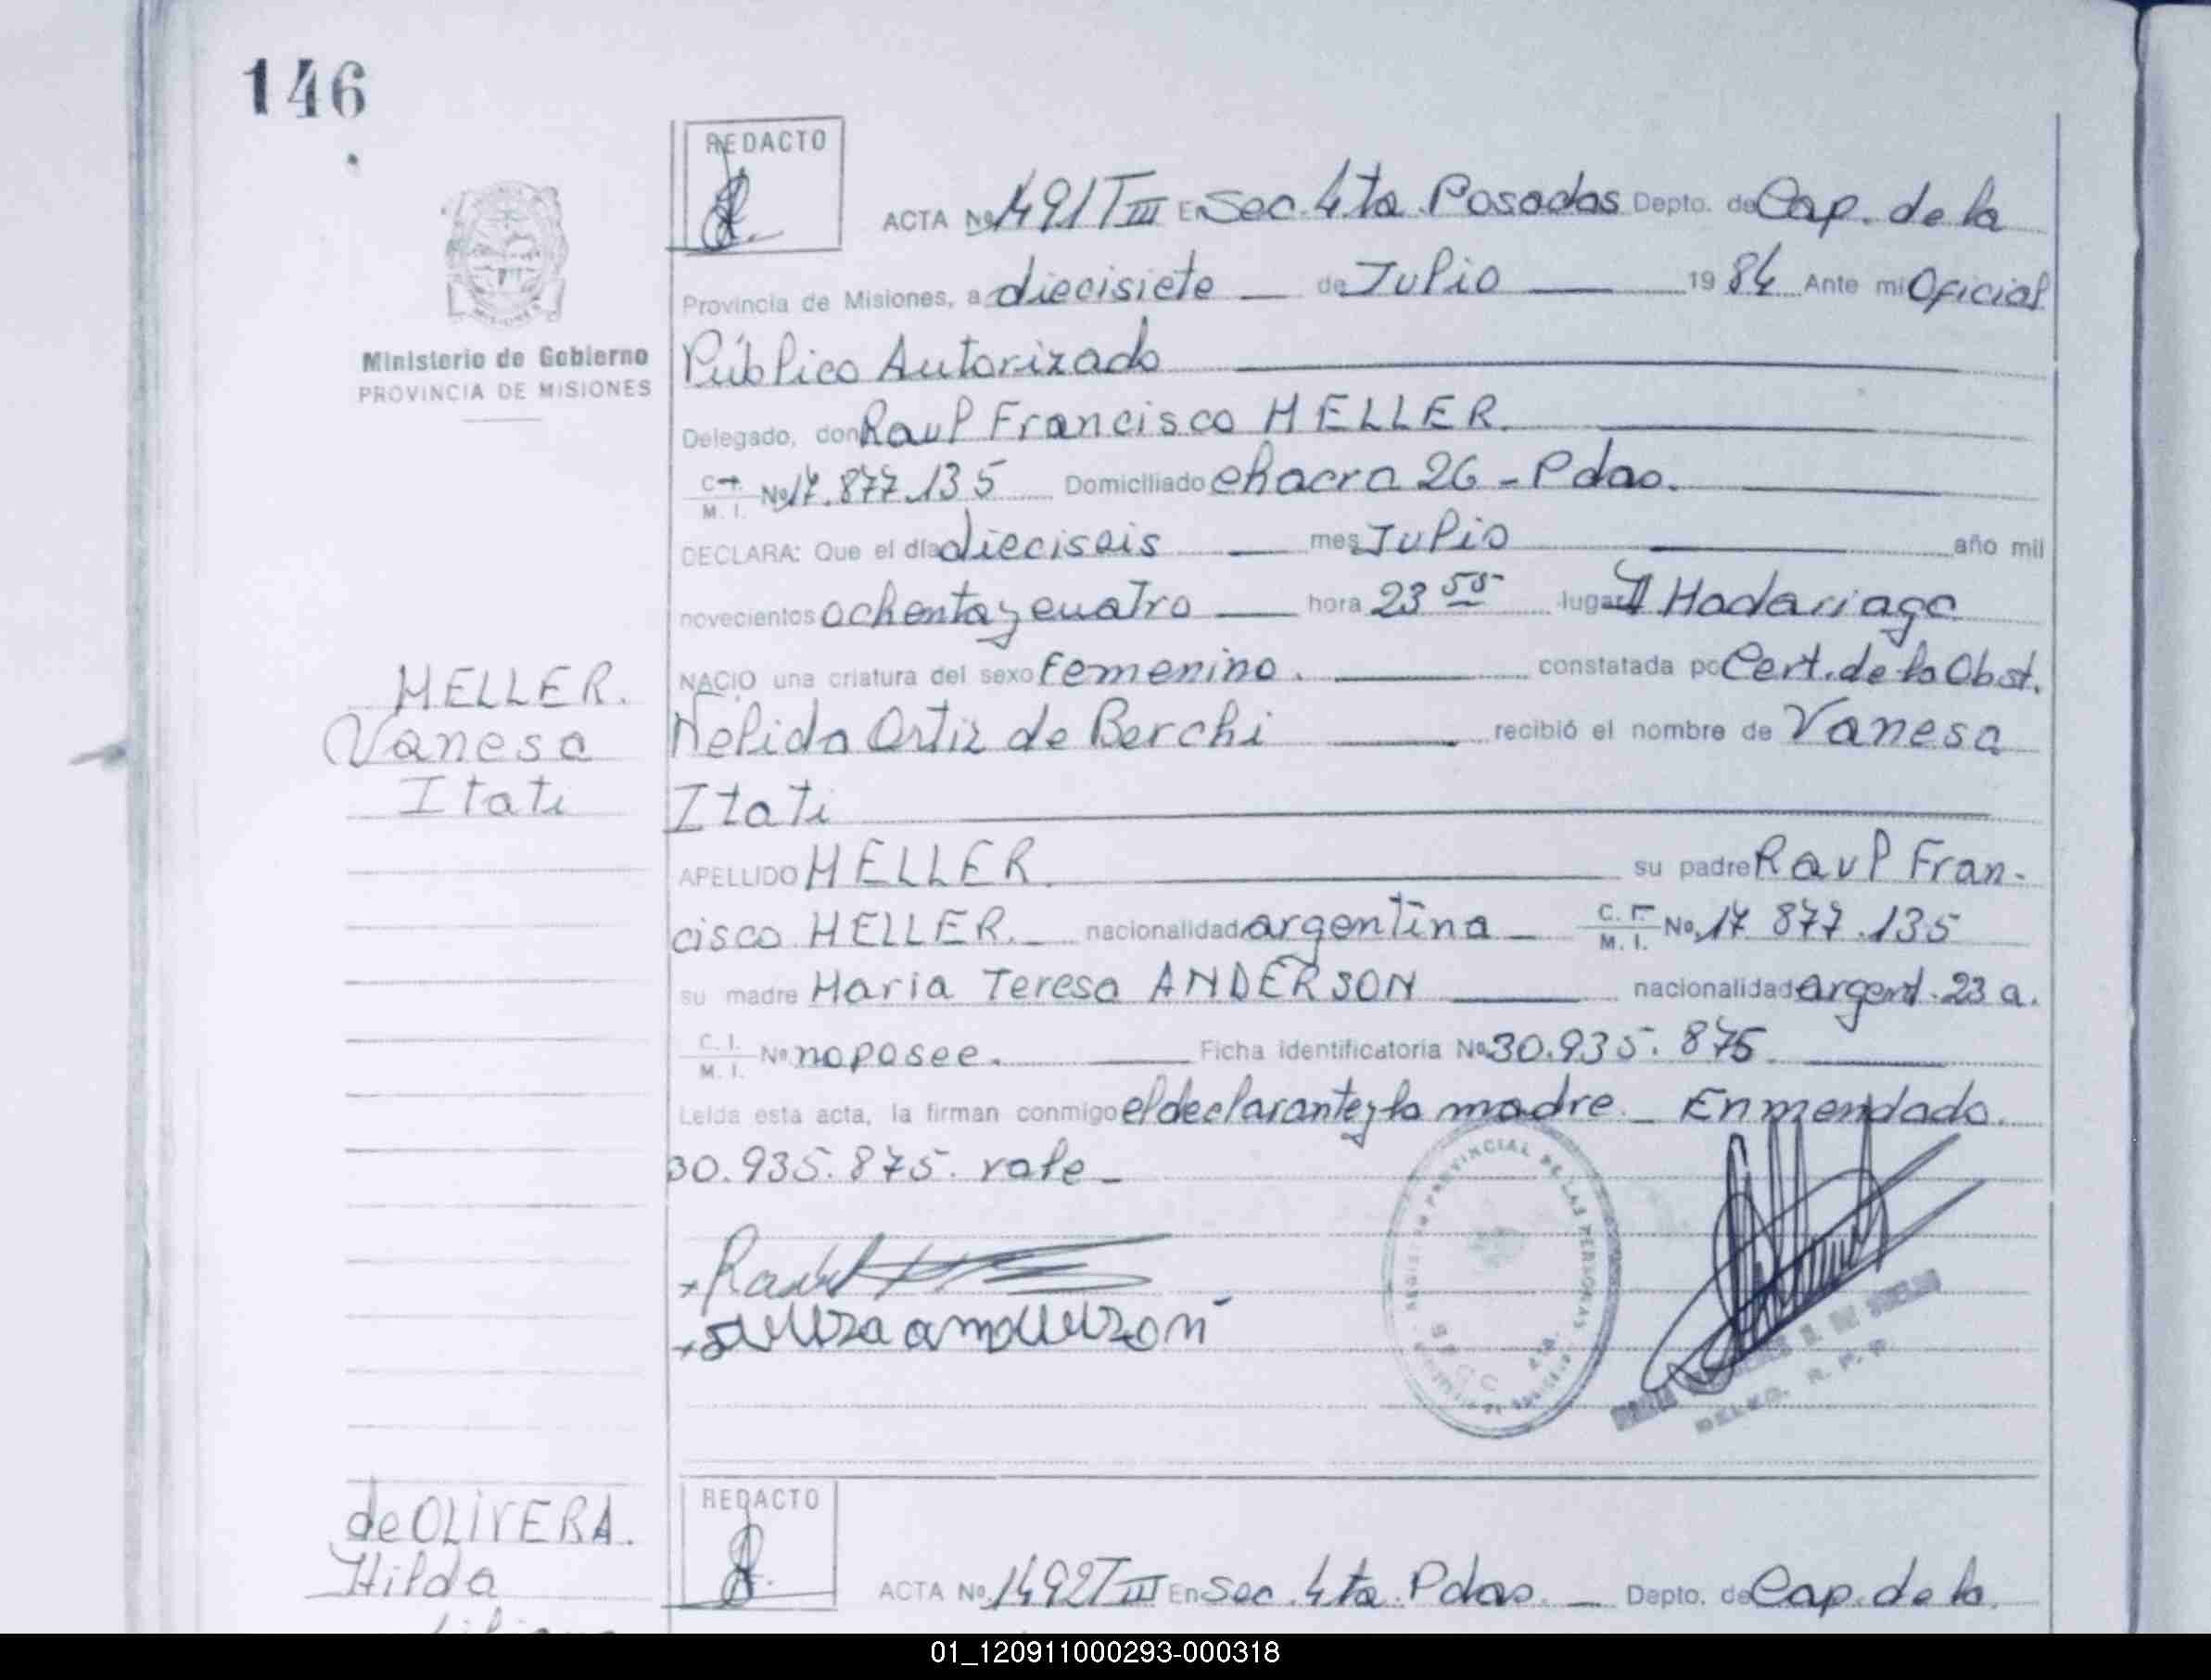 146
REDACTO
ACTA Nº 1491 T III En Sec. 4ta. Posadas Depto. de Cap. de la
Provincia de Misiones, a diecisiete de Julio 1984 Ante mi Oficial
Ministerio de Gobierno
PROVINCIA DE MISIONES
Público Autorizado
Delegado, don Raul Francisco HELLER.
C. I. M. I. Nº 17.877.135 Domiciliado chacra 26 - Pdas.
DECLARA: Que el día dieciseis mes Julio año mil
novecientos ochenta y cuatro hora 23 55 lugar H Madariaga
NACIO una criatura del sexo Femenino. constatada po Cert. de la Obst.
Nelida Ortiz de Berchi recibió el nombre de Vanesa
Itati
HELLER.
Vanesa
Itati
APELLIDO HELLER su padre Raul Fran-
cisco HELLER. nacionalidad argentina C. I. M. I. No. 17 877.135
su madre Maria Teresa ANDERSON nacionalidad argent. 23 a.
C. I. M. I. Nº no posee. Ficha identificatoria Nº 30.935.875
Leida esta acta, la firman conmigo el declarante y la madre. Enmendado.
30.935.875. vale
PROVINCIAL DE LAS PERSONAS
de OLIVERA.
Hilda
REDACTO
ACTA Nº 1492 T III En Sec. 4ta. Pdas. Depto. de Cap. de la
01_120911000293-000318